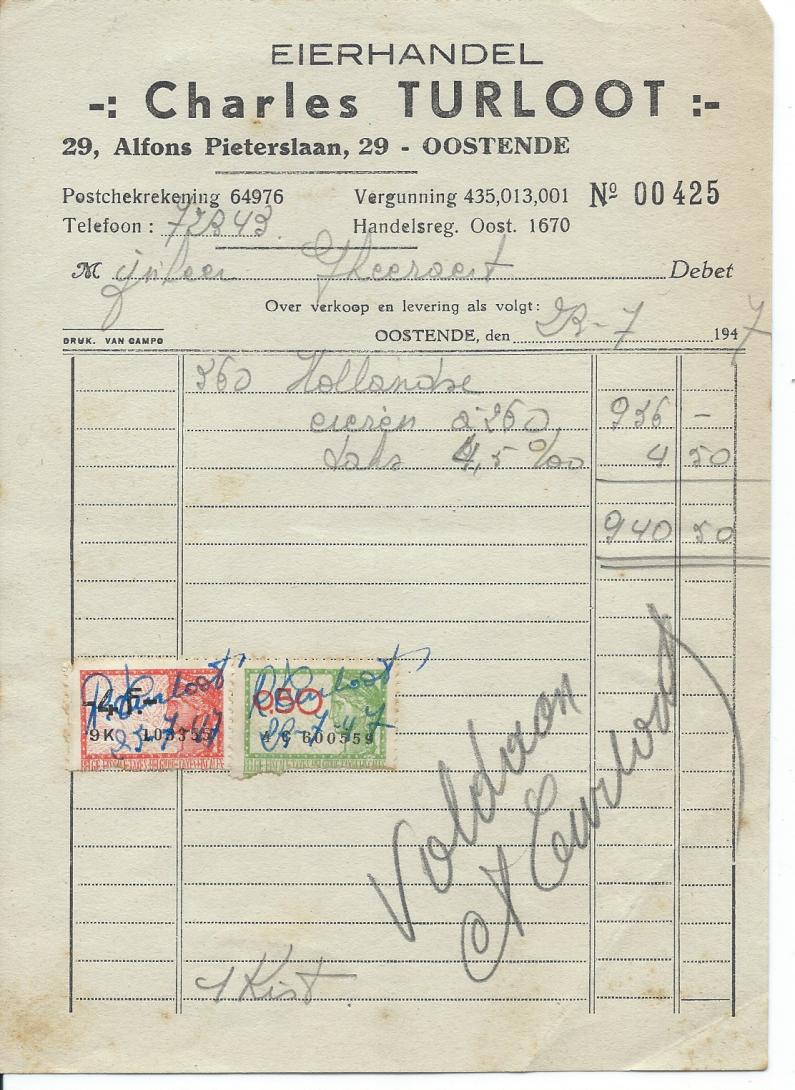 EIERHANDEL
-: Charles TURLOOT :-
29, Alfons Pieterslaan, 29 - OOSTENDE
Postchekrekening 64976 Vergunning 435,013,001 Nº 00425
Telefoon : 72843 Handelsreg. Oost. 1670
Mijnheer Debet
Over verkoop en levering als volgt:
DRUK. VAN CAMPO OOSTENDE, den 23-7 1947
360 Hollandse
eieren à 260 936 -
taks 4,5 %00 4 50
940 50
Turloot Turloot
0.50
9K 23-7-47 4 C 600559
23-7-47
Voldaan
Turloot
1 Kist